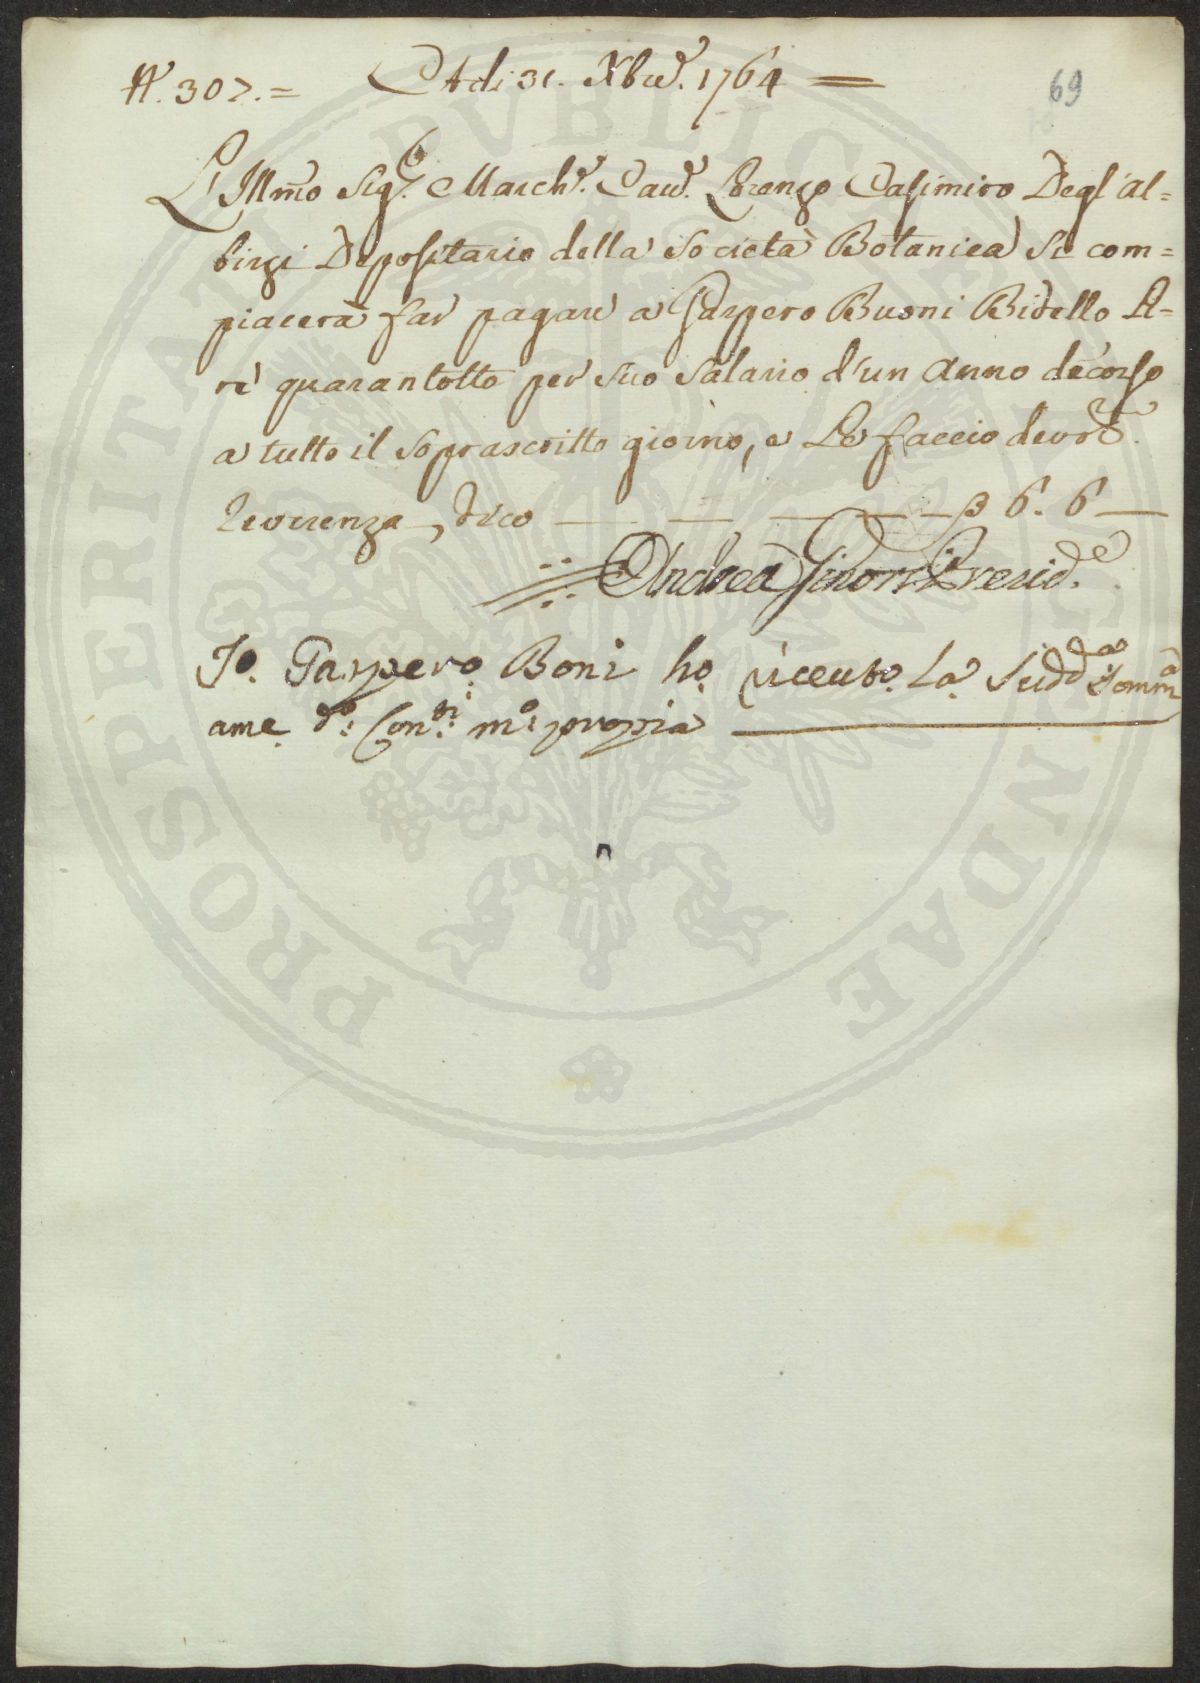 N. 307. = Adi 31. Xbre. 1764 =
69
L'Illmo Sigr. March. Cav. Lorenzo Casimiro Degl'Al=
bizi Depositario della Società Botanica si com=
piacerà far pagare a Gaspero Buoni Bidello Li=
re quarantotto per suo Salario d'un Anno decorso
a tutto il soprascritto giorno, e Le faccio devte.
reverenza, dico — — — — 6. 6 —
Andrea Ginori Presid.e
Io. Gaspero. Boni ho. riceuto. La. Sudda Somma
ame. do. Conti. mo. propria
PROSPERITATI PVBLICAE AVGENDAE